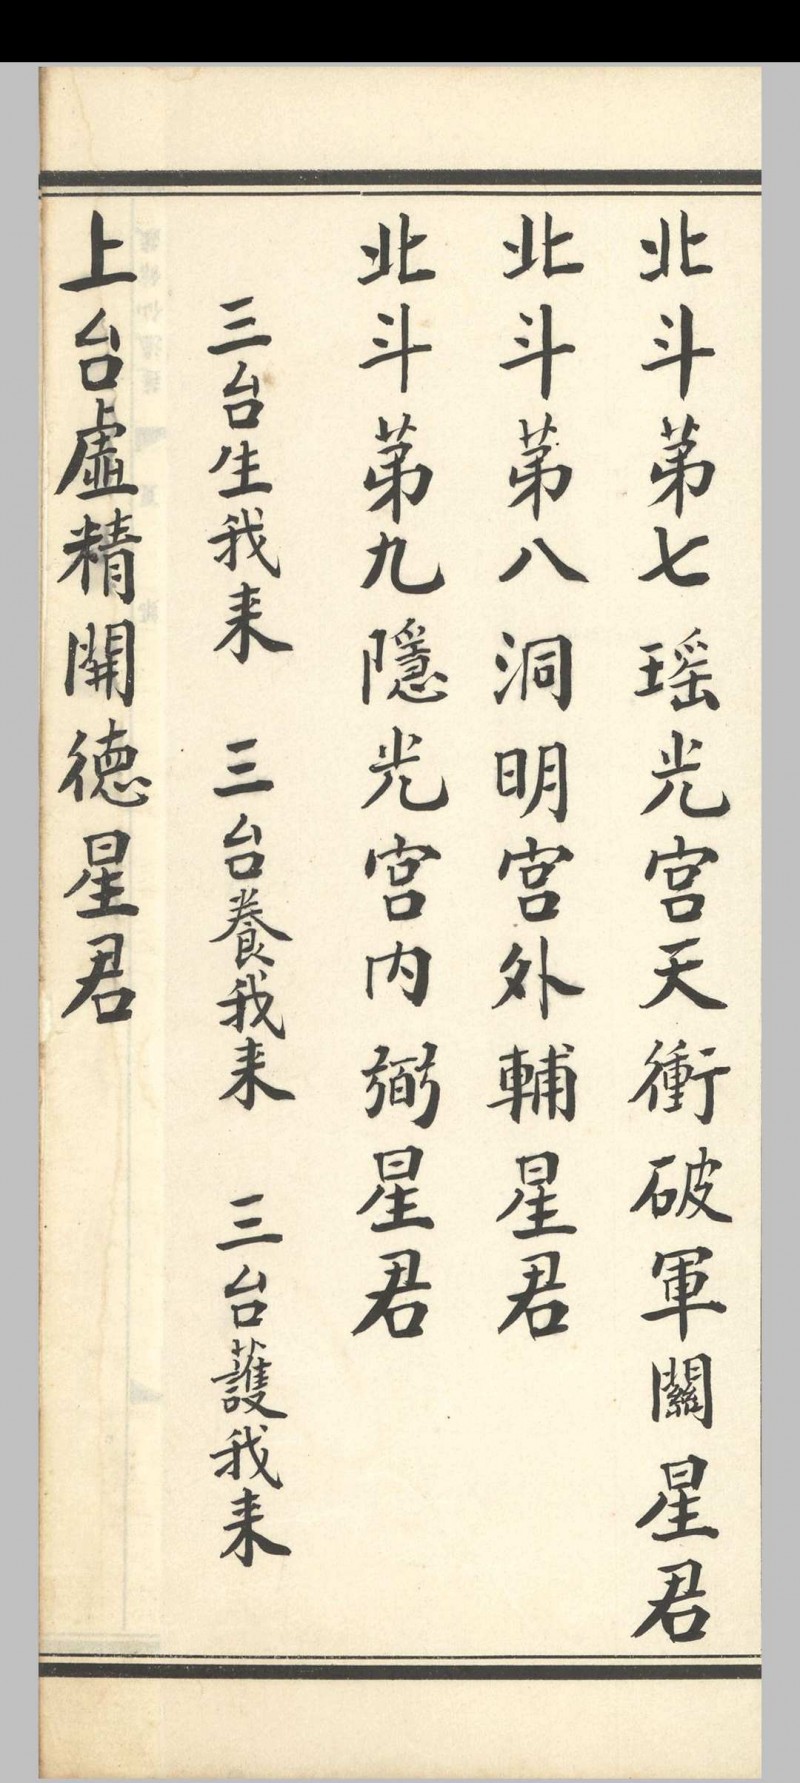 北斗第七瑶光宮天衝破軍關星君
北斗第八洞明宮外輔星君
北斗第九隱光宮内弼星君
三台生我来　三台養我来　三台護我来
上台虛精開德星君